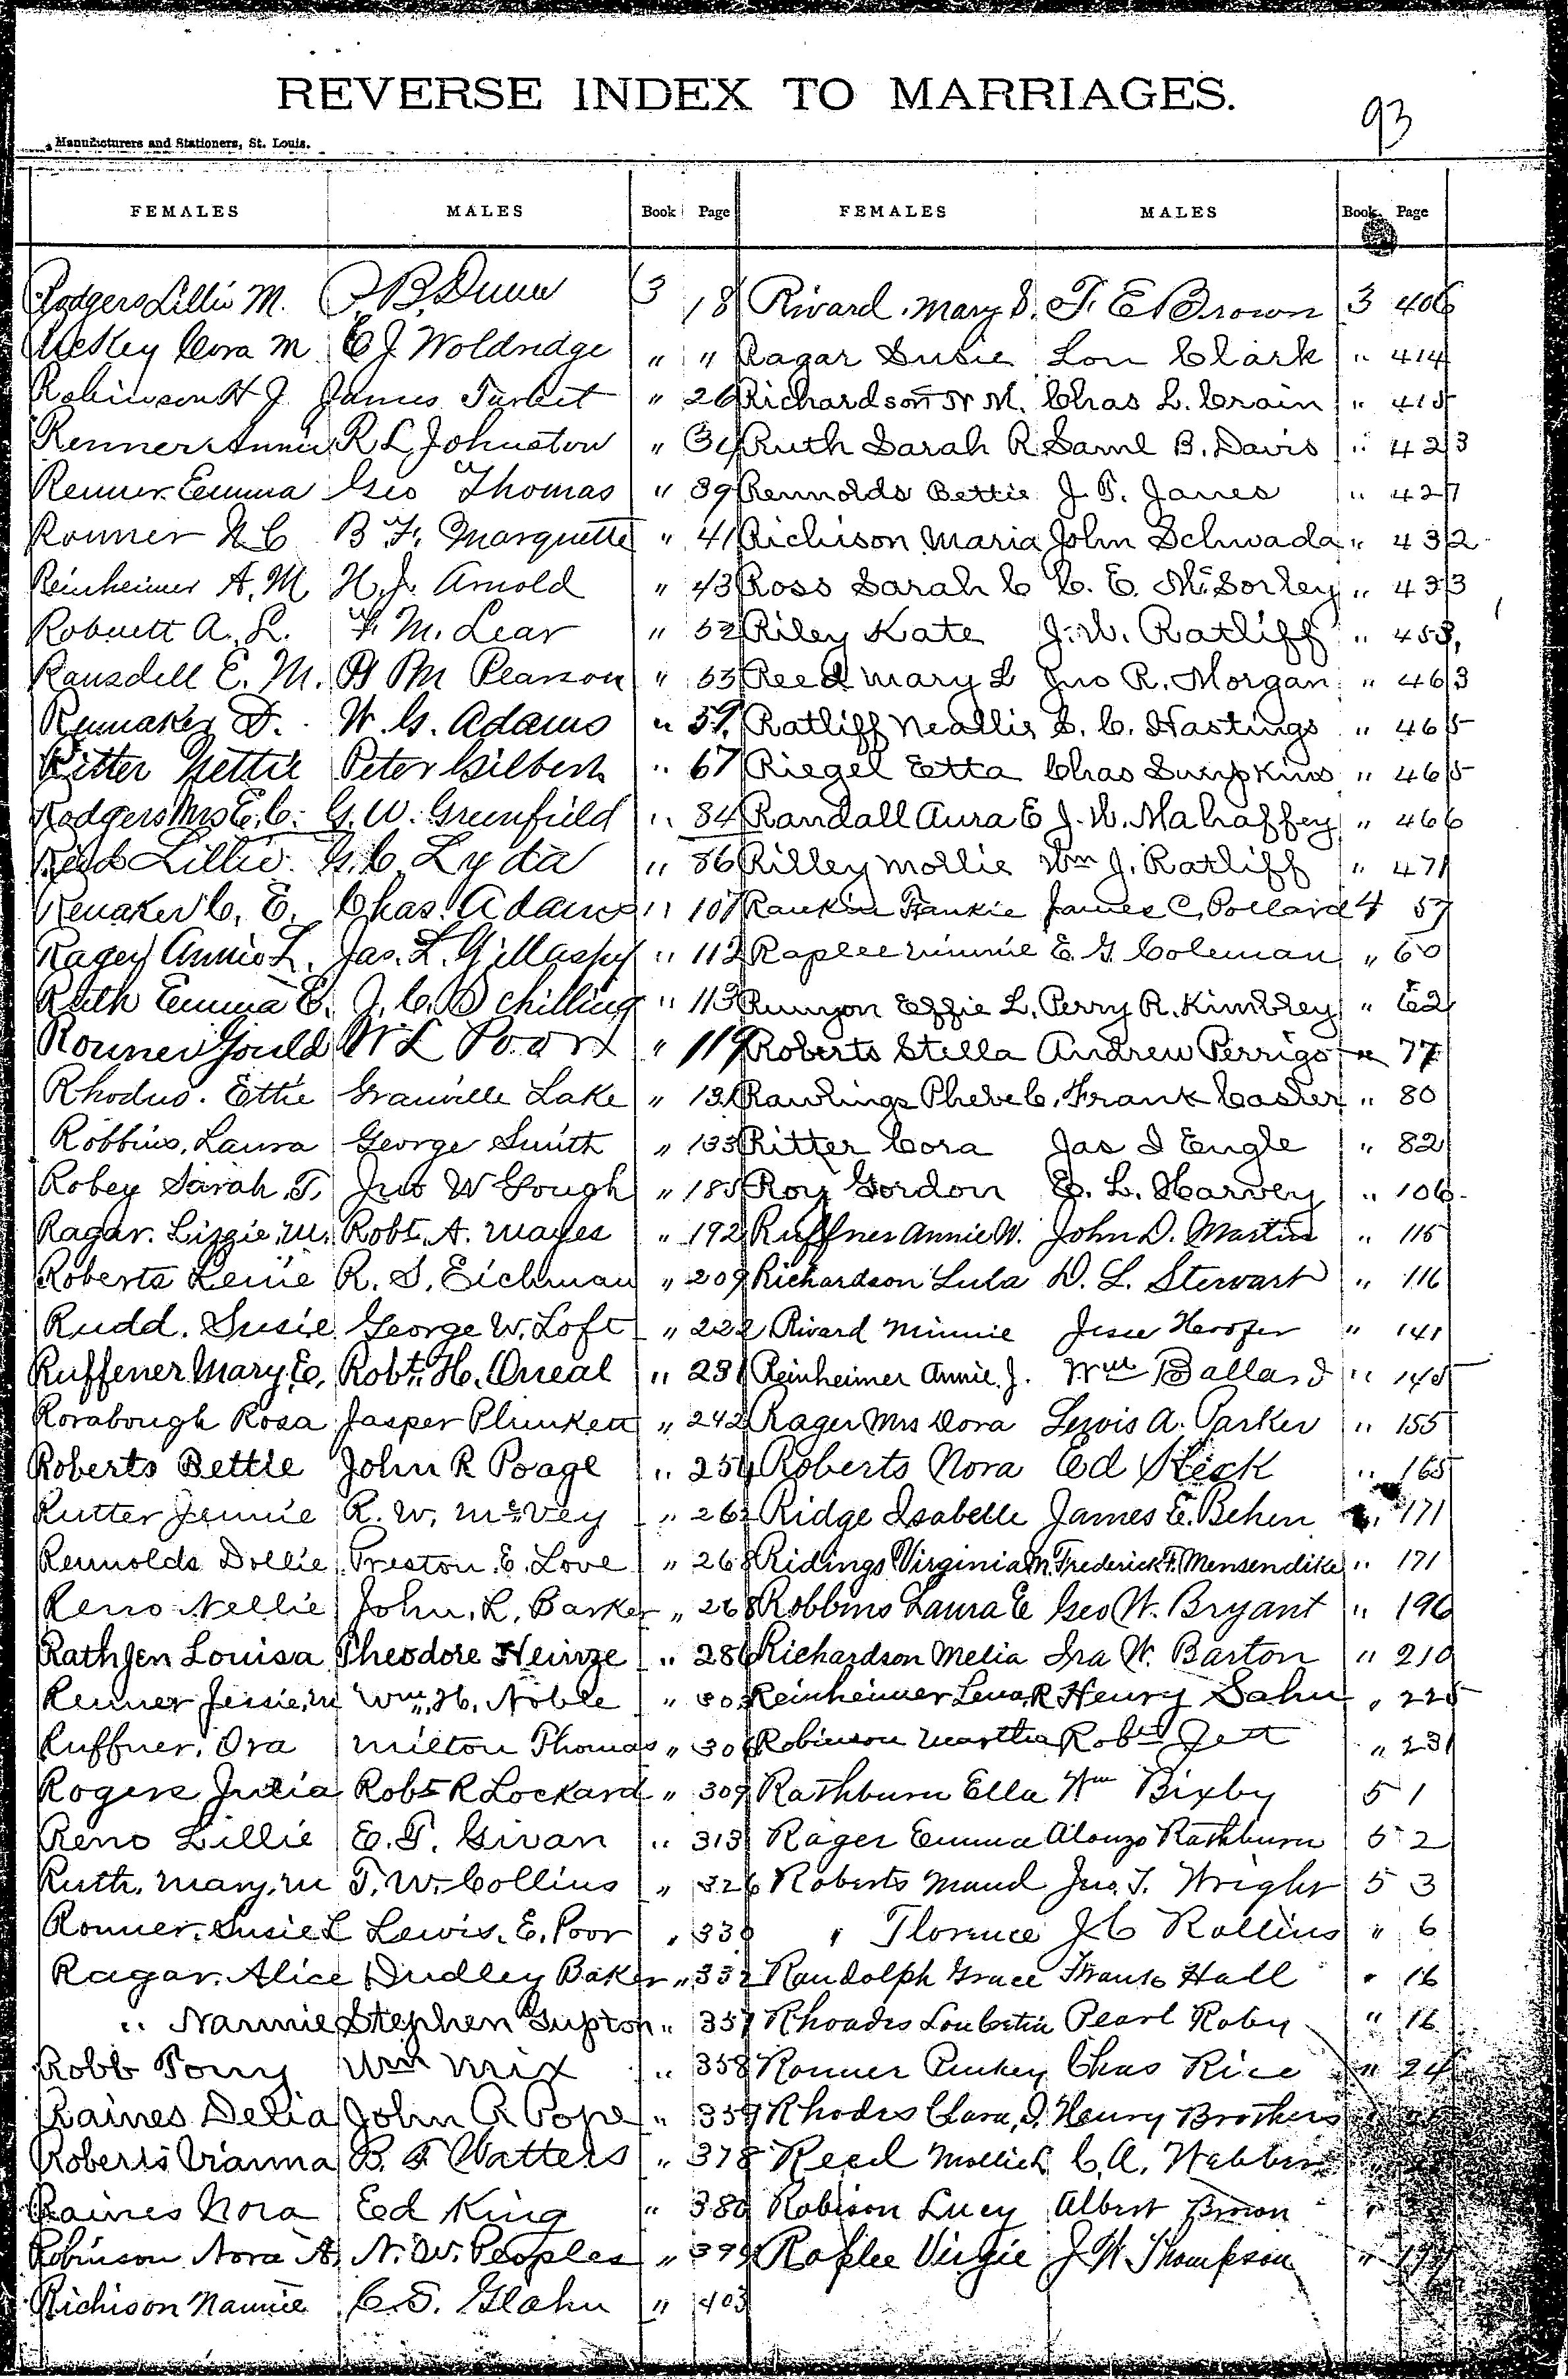 REVERSE INDEX TO MARRIAGES.
93
Manufacturers and Stationers, St. Louis.
FEMALES MALES Book Page FEMALES MALES Book Page
Rodgers Lillie M. B. Dunn 3 18
Rickey Cora M C J Woldridge " "
Robinson H J James Turbit " 26
Renner Annie R L Johnston " 34
Renner Emma Geo Thomas " 39
Rouner N C B F. Marquette " 41
Reinheimer A. M H. J. Arnold " 43
Robnett A. L. F. M. Lear " 52
Ransdell E. M. Pearson " 53
Renaker D. W. G. Adams " 59
Ritter Nettie Peter Gilbert " 67
Rodgers Mrs E. C. G. W. Greenfield " 84
Lillie G. C Lyda " 86
Renaker C. E. Chas. Adams " 107
Ragey Annie L. Jas. L. Gillaspy " 112
Ruth Emma E. J. C. Schilling " 113
Rouner Gould W L Poor " 119
Rhodus. Ettie Granville Lake " 131
Robbins, Laura George Smith " 133
Robey Sarah T. Jno W Gough " 185
Ragar. Lizzie, M. Robt. A. Mayes " 192
Roberts Lenie R. S. Eichman " 209
Rudd. Susie George W. Loft " 222
Ruffener Mary E. Robt. H. Oneal " 231
Rorabough Rosa Jasper Plunkett " 242
Roberts Bettie John R Poage " 254
Rutter Jennie R. W. McVey " 262
Rennolds Dollie Preston. E. Love " 268
Reno Nellie John. L. Barker " 268
Rathjen Louisa Theodore Heinze " 286
Renner Jessie, M Wm. H. Noble " 303
Ruffner, Ora Milton Thomas " 306
Rogers Julia Robt R Lockard " 309
Reno Lillie E. T. Givan " 313
Ruth. Mary, M T. W. Collins " 326
Rouner. Susie L Lewis. E. Poor " 330
Ragar. Alice Dudley Baker " 332
" Nannie Stephen Gupton " 357
Robb Tony Wm Mix " 358
Raines Delia John R Pope " 359
Roberts Vianna B. F Watters " 378
Raines Nora Ed King " 380
Robinson Nora A. N. W. Peoples " 399
Richison Nannie C. T. Glahn " 403
Rivard. Mary D. F. E Brown 3 406
Ragar Susie Lon Clark " 414
Richardson N M. Chas L. Crain " 415
Ruth Sarah R Saml B. Davis " 423
Rennolds Bettie J. T. Janes " 427
Richison Maria John Schwada " 432
Ross Sarah C C. E. McSorley " 433
Riley Kate J. W. Ratliff " 453
Reed Mary L Jno R. Morgan " 463
Ratliff Neallie S. C. Hastings " 465
Riegel Etta Chas Simpkins " 465
Randall Aura E J. W. Mahaffey " 466
Rilley Mollie Wm J. Ratliff " 471
Rankin Frankie James C. Pollard 4 57
Raplee Minnie E. G. Coleman " 60
Runyon Effie L. Perry R. Kimbley " 62
Roberts Stella Andrew Perrigo " 77
Rawlings Phebe C. Frank Casler " 80
Ritter Cora Jas I Engle " 82
Roy Gordon E. L. Harvey " 106
Ruffner Annie W. John D. Martin " 115
Richardson Lula D. L. Stewart " 116
Rivard Minnie Jesse Hoofer " 141
Reinheimer Annie. J. Wm Ballard " 145
Rager Mrs Dora Lewis A. Parker " 155
Roberts Nora Ed Keck " 165
Ridge Isabelle James E. Behen " 171
Ridings Virginia M. Frederick F. Mensendike " 171
Robbins Laura E Geo W. Bryant " 196
Richardson Melia Ira W. Barton " 210
Reinheimer Lena R Henry Sahn " 225
Robinson Martha Robt Jett " 231
Rathburn Ella Wm Bixby 5 1
Rager Emma Alonzo Rathburn 5 2
Roberts Maud Jno. T. Wright 5 3
" Florence J C Rollins " 6
Randolph Grace Frank Hall " 16
Rhoades Pearl Roby " 16
Rouner Pinkey Chas Rice " 24
Rhodes Clara, I. Henry Brothers
Reed Mollie C. A. Webber
Robison Lucy Albert Brown "
Raplee Virgie J. W Thompson "